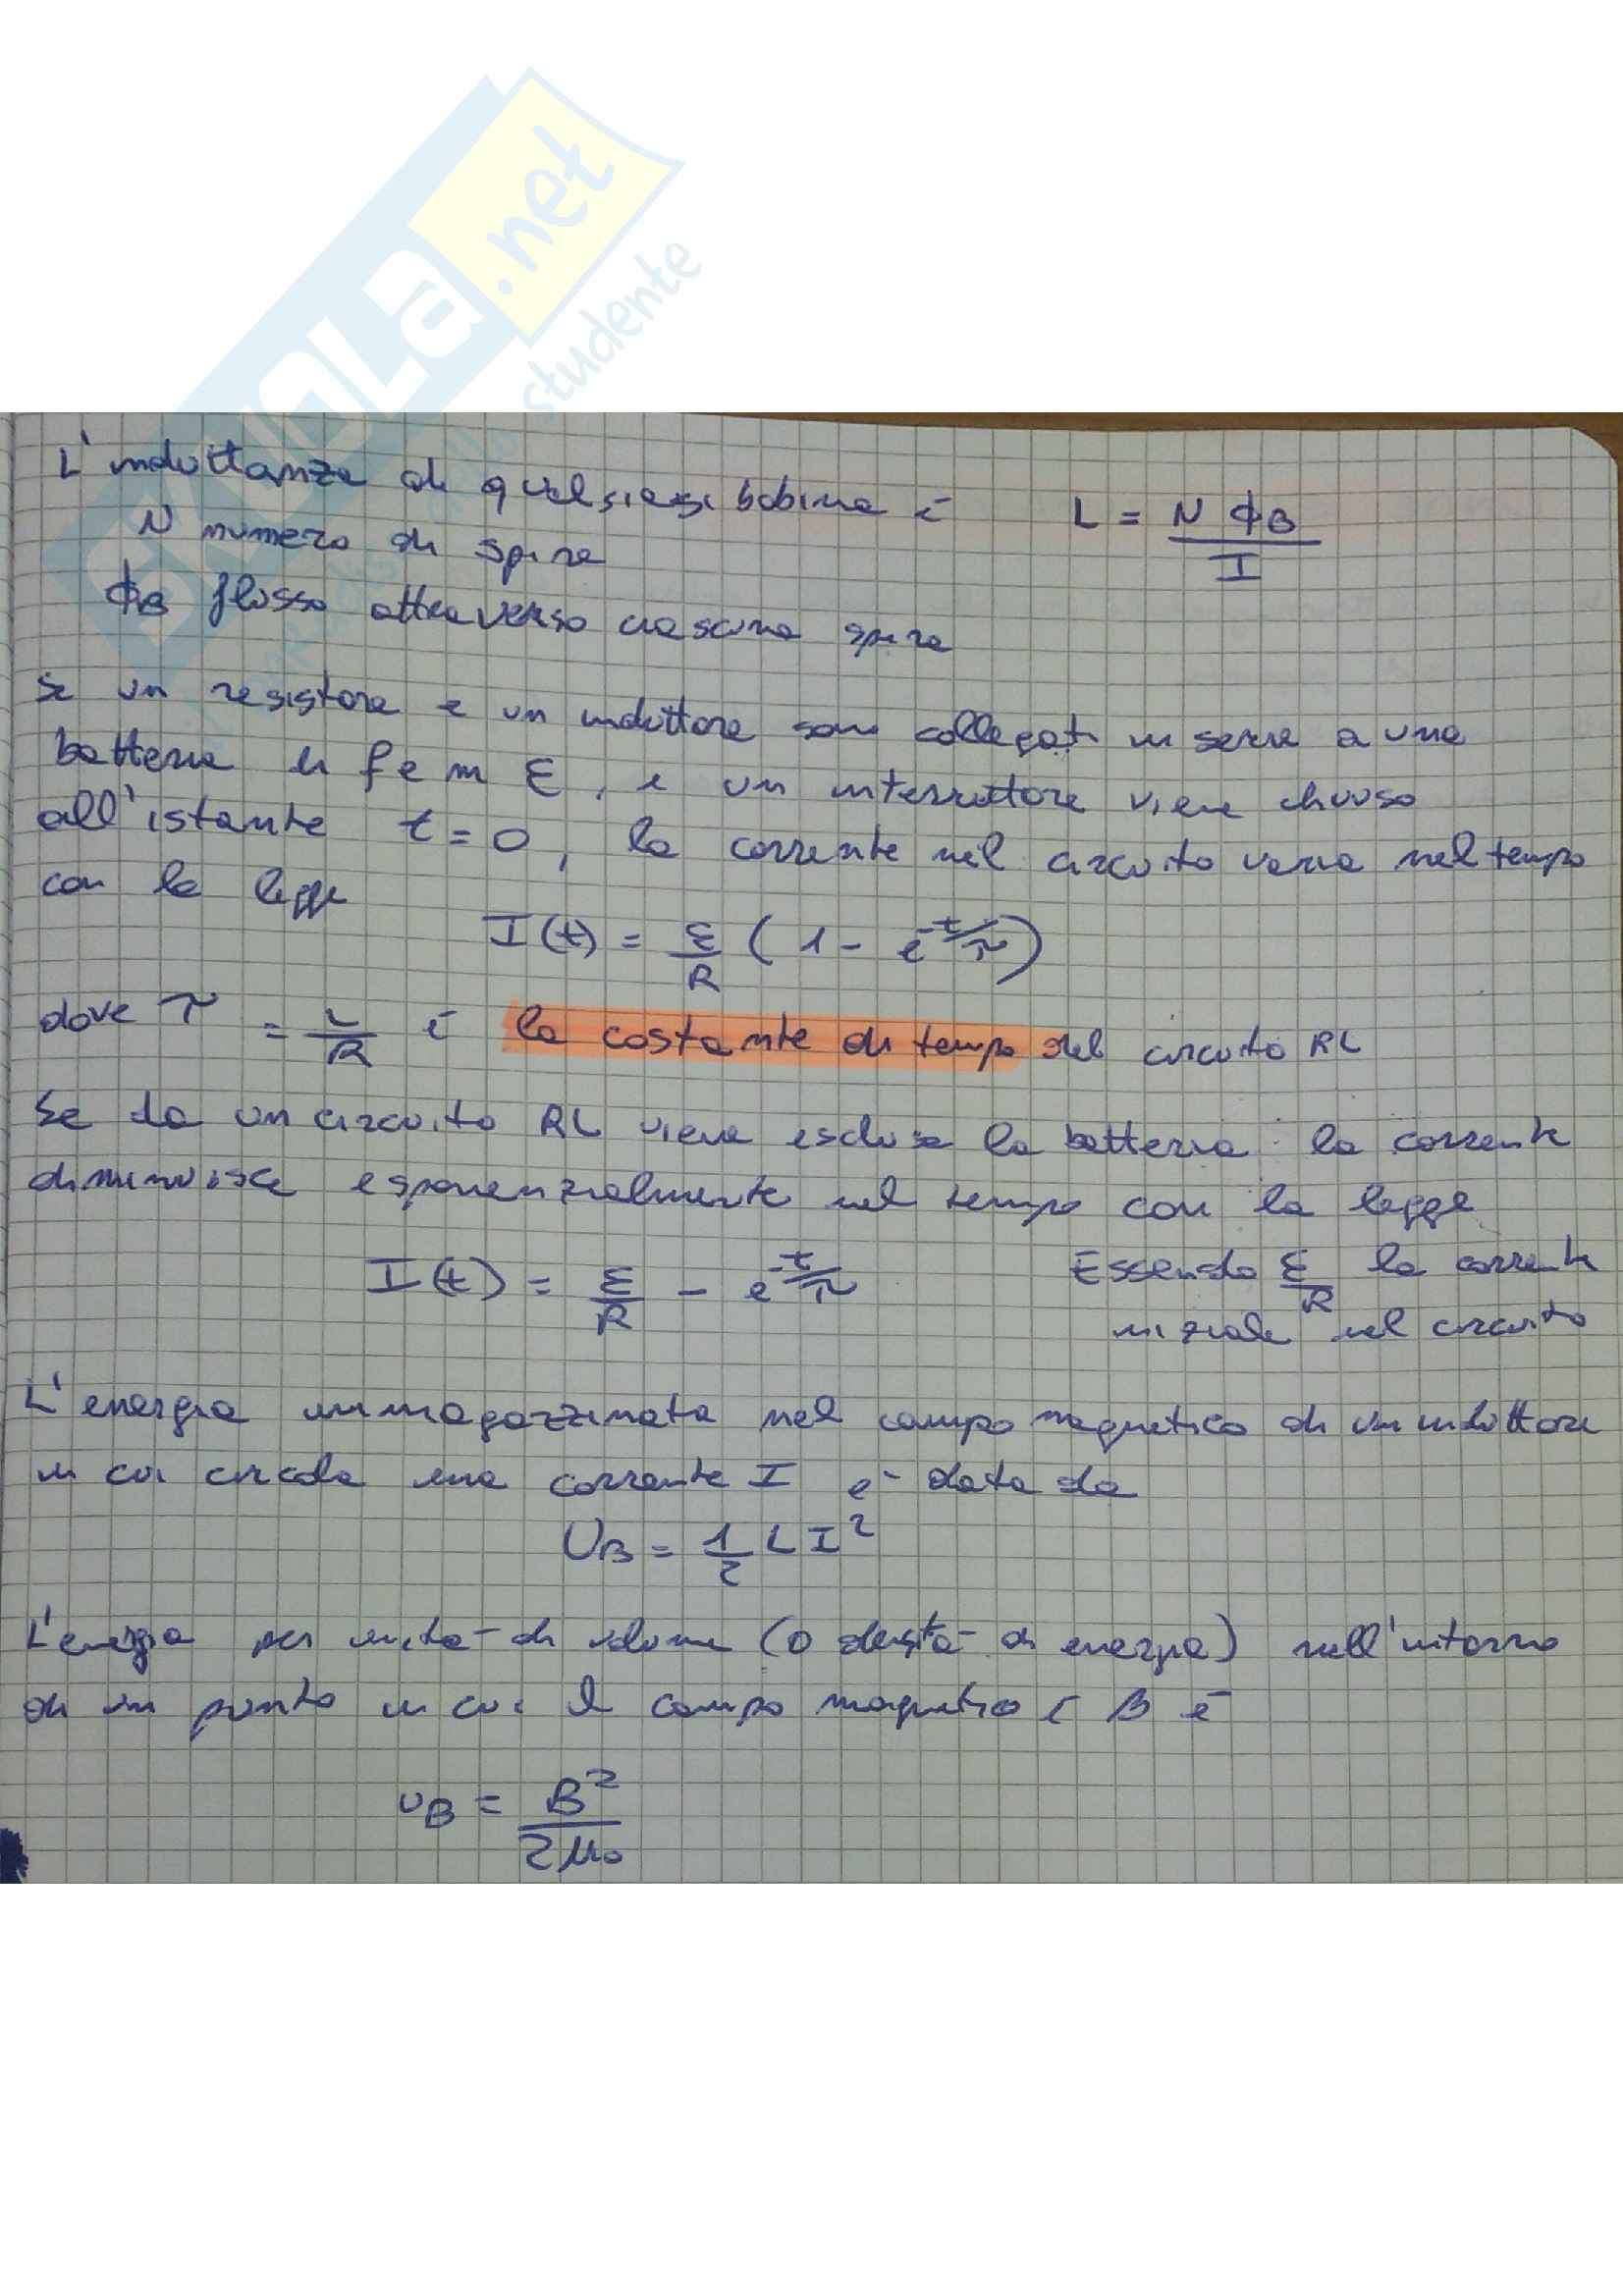 SKUOLa.net
studente
L'induttanza di qualsiasi bobina è L = N ΦB / I
N numero di spire
ΦB flusso attraverso ciascuna spira
Se un resistore e un induttore sono collegati in serie a una
batteria di fem Ɛ, e un interruttore viene chiuso
all'istante t = 0, la corrente nel circuito varia nel tempo
con la legge
I(t) = Ɛ/R (1 - e^-t/τ)
dove τ = L/R è la costante di tempo del circuito RL
Se da un circuito RL viene esclusa la batteria la corrente
diminuisce esponenzialmente nel tempo con la legge
I(t) = Ɛ/R - e^-t/τ Essendo Ɛ/R la corrente
iniziale nel circuito
L'energia immagazzinata nel campo magnetico di un induttore
in cui circola una corrente I è data da
UB = 1/2 L I²
L'energia per unità di volume (o densità di energia) nell'intorno
di un punto in cui il campo magnetico è B è
uB = B² / 2μ0